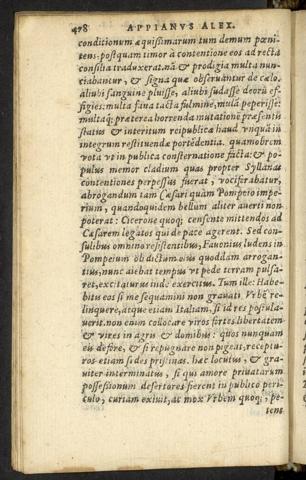 478 APPIANVS ALEX.
conditionum æquissimarum tum demum pœni-
tens: postquam timor à contentione eos ad recta
consilia traduxerat. nã & prodigia multa nun-
ciabantur, & signa quæ obseruãtur de cælo.
aliubi sanguine pluisse, aliubi sudasse deorũ ef-
figies: multa fana tacta fulmine, mulã peperisse:
multaq; præterea horrenda mutationē præsentis
status & interitum reipublicæ haud vnquã in
integrum restituendæ portēdentia. quamobrem
vota vt in publica consternatione facta: & po-
pulus memor cladium quas propter Syllanas
contentiones perpessus fuerat, vociferabatur,
abrogandum tam Cæsari quàm Pompeio impe-
rium, quandoquidem bellum aliter auerti non
poterat: Cicerone quoq; censente mittendos ad
Cæsarem legatos qui de pace agerent. Sed con-
sulibus omnino resistentibus, Fauonius ludens in
Pompeium ob dictum eius quoddam arrogan-
tius, nunc aiebat tempus vt pede terram pulsa-
ret, excitaturus inde exercitus. Tum ille: Habe-
bitis eos si me sequamini non grauati Vrbē re-
linquere, atque etiam Italiam, si id res postula-
uerit. non enim collocare viros fortes libertatem
& vires in agris & domibus: quos nunquam
eis defore, & si repugnare non pigeat, receptu-
ros etiam sedes pristinas. hæc locutus, & gra-
uiter interminatus, si qui amore priuatarum
possessionum desertores fierent in publico peri-
culo, curiam exiuit, ac mox Vrbem quoq;, pe-
tens